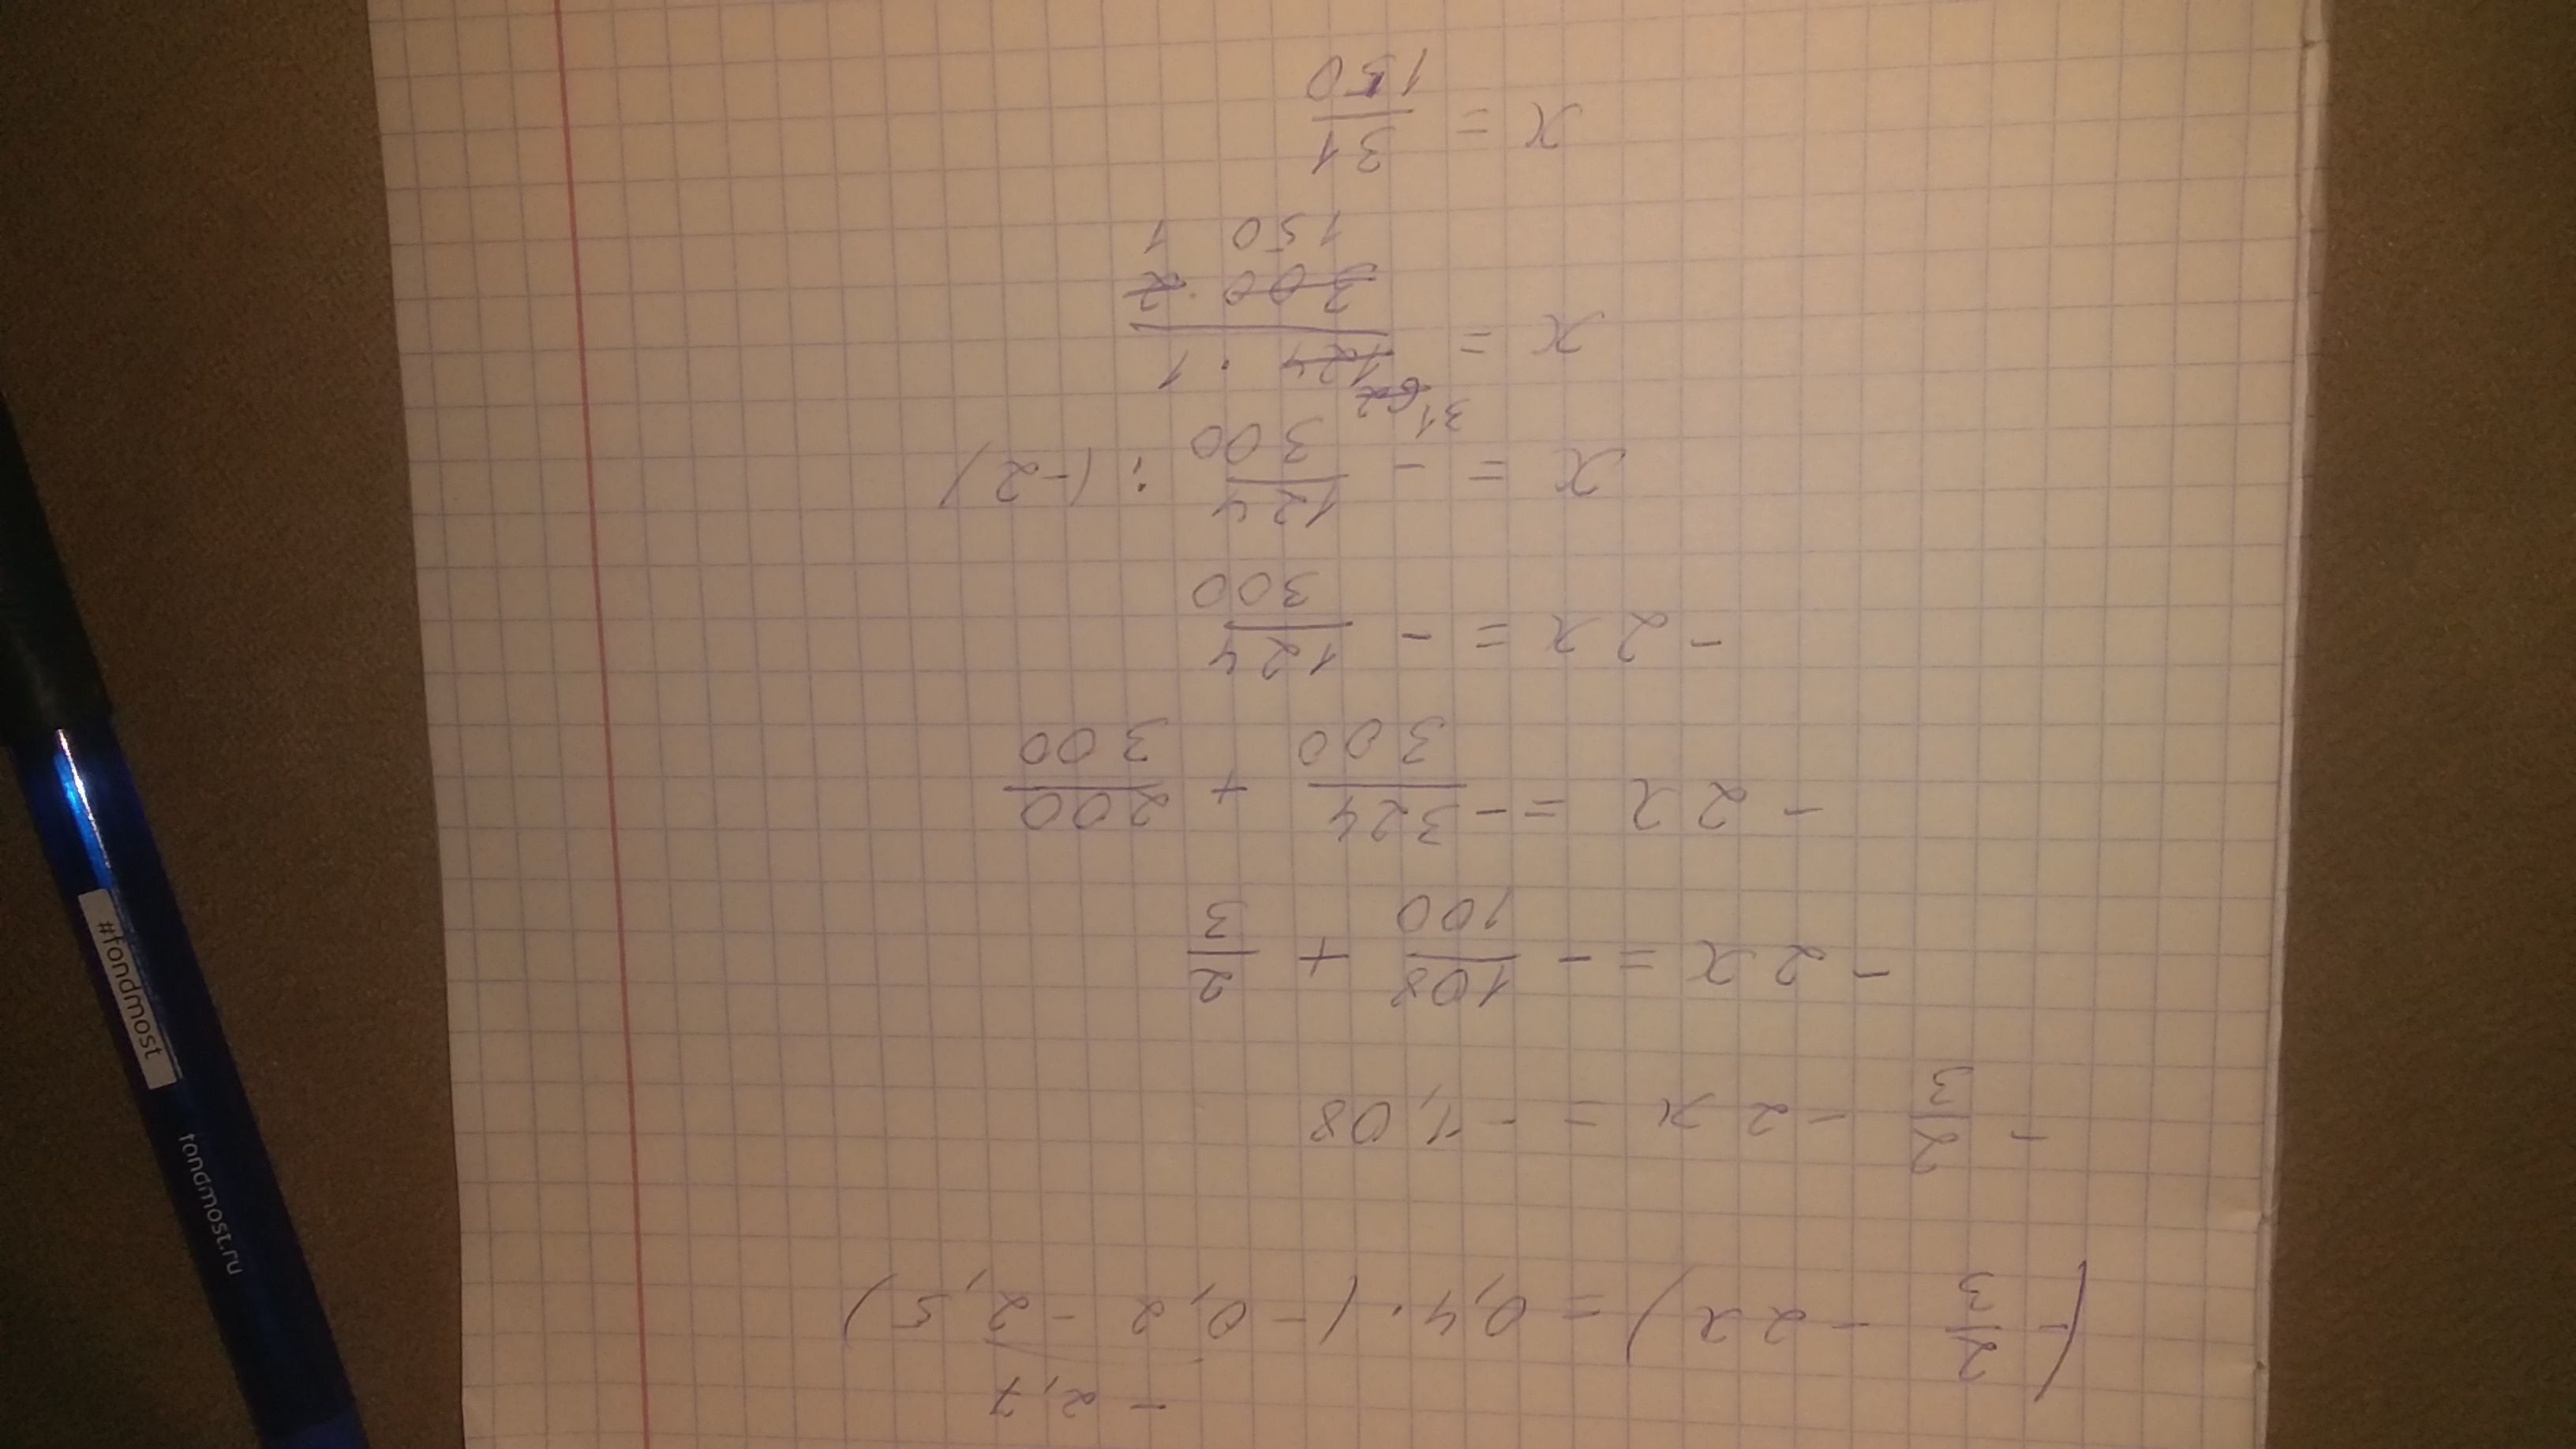 - 2,7
(- 2/3 - 2x) = 0,4 · (- 0,2 - 2,5)
- 2/3 - 2x = - 1,08
- 2x = - 108/100 + 2/3
- 2x = - 324/300 + 200/300
- 2x = - 124/300
x = - 124/300 : (-2)
31 62
x = 124 · 1 / 300 · 2
150 1
x = 31/150
#fondmost
fondmost.ru